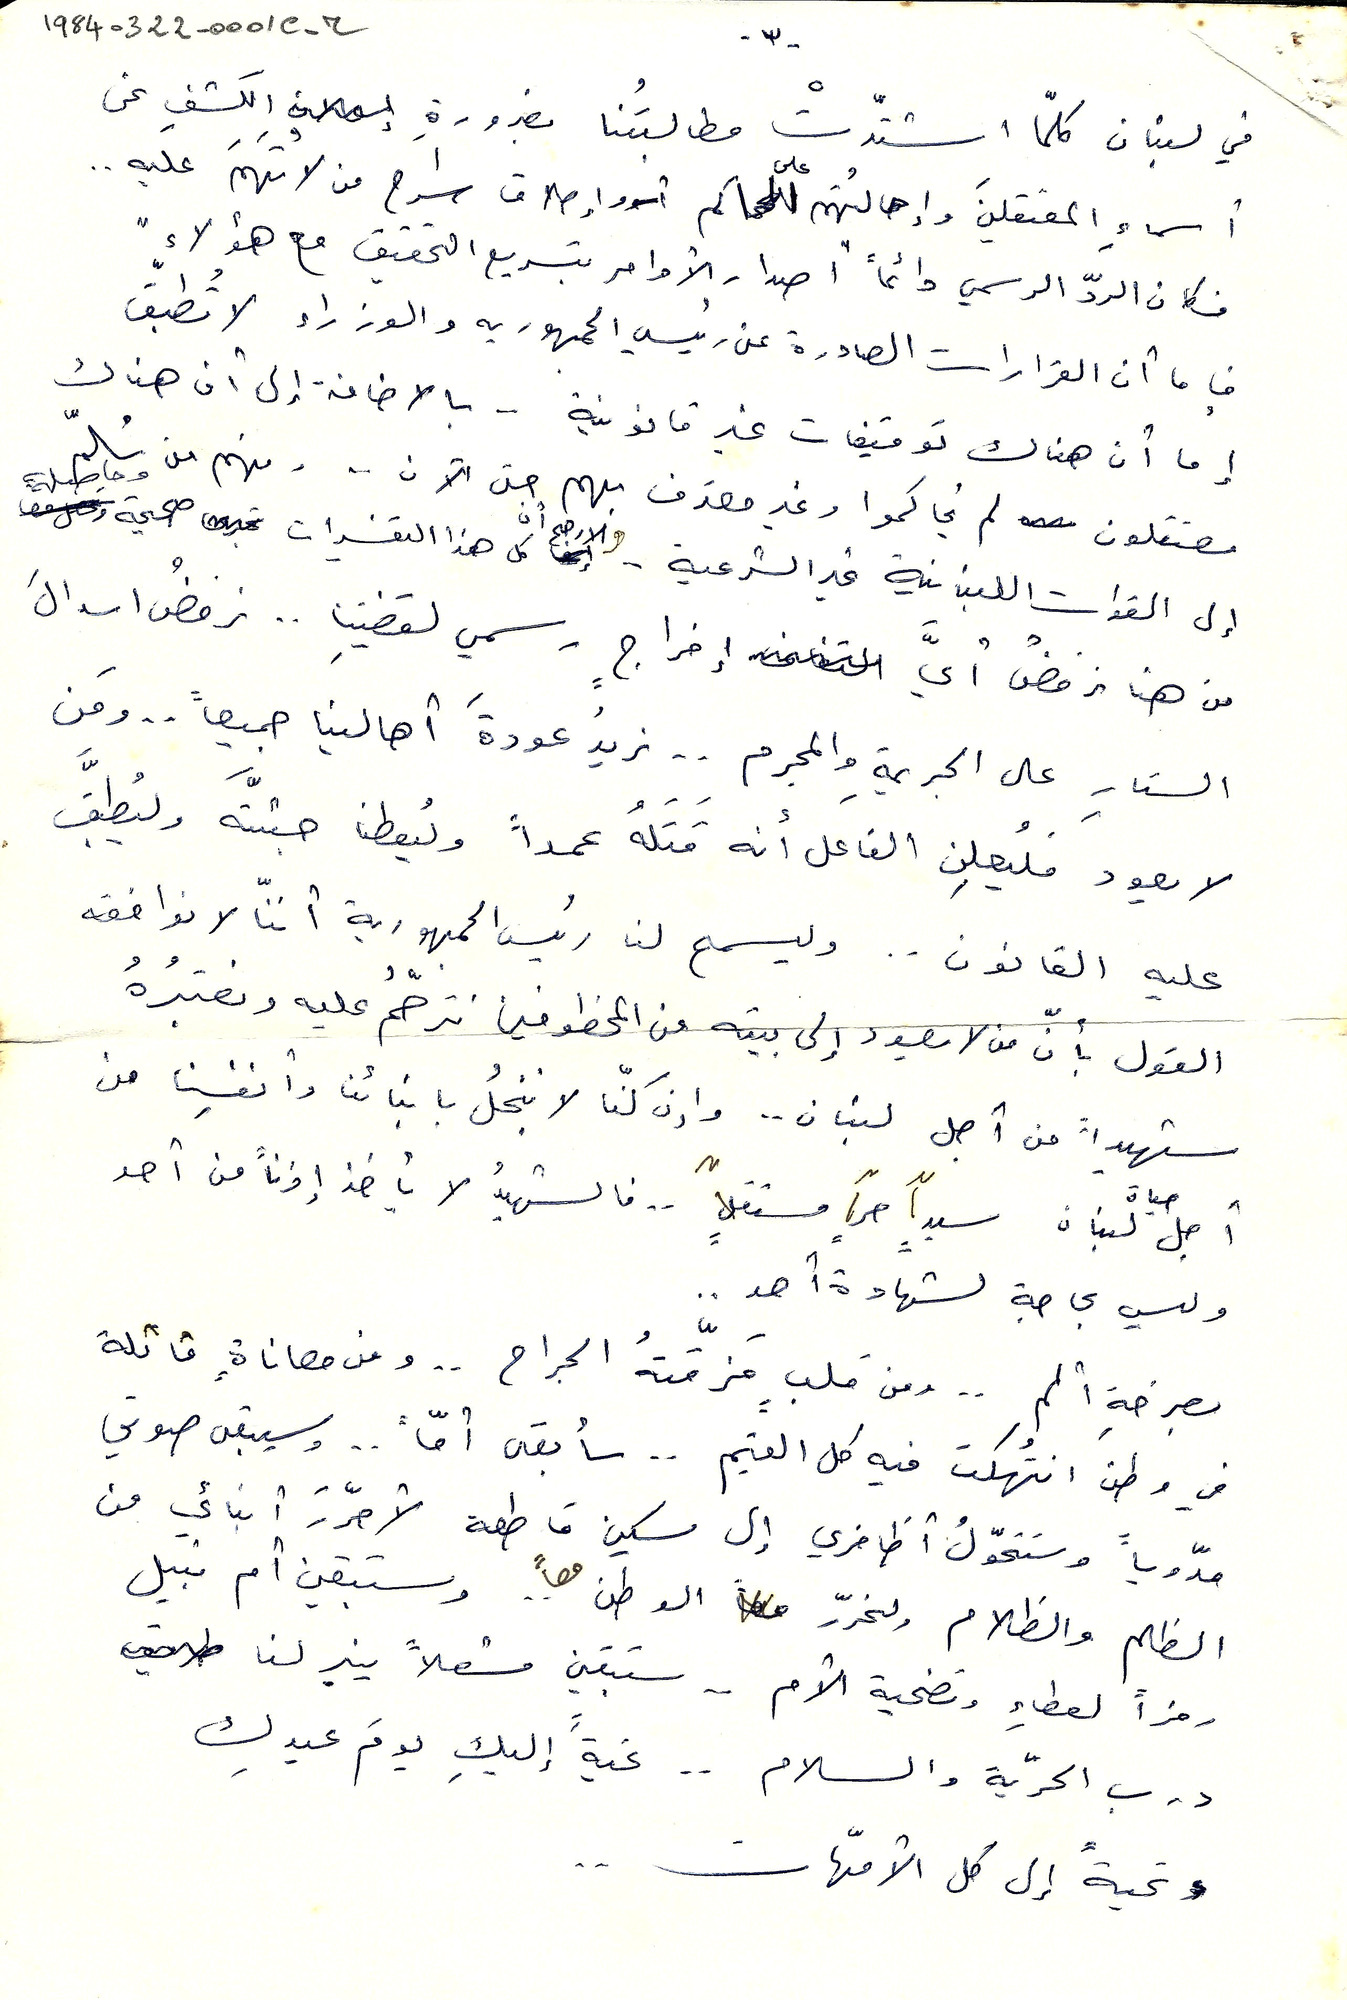 1984-322-0001C-r
-٣-
في لبنان كلّما اشتدّتْ مطالبتُنا بضرورةِ الكشفِ عن
أسماءِ المعتقلينَ وإحالتِهم على المحاكم أو إطلاق سراح من لا تُهَمَ عليه ..
فكان الردّ الرسمي دائماً "إصدار الأوامر بتسريع التحقيق مع هؤلاء"
فإما أن القرارات الصادرة عن رئيس الجمهورية والوزراء لا تُطبَّق
إما أن هناك توقيفات غير قانونية - بالاضافة إلى أن هناك
معتقلون لم يُحاكموا وغير معترف بهم حتى الآن - ومنهم من سُلِّمَ
إلى القوات اللبنانية غير الشرعية - والأرجح أنَّ كل هذا التفسيرات صحيحة وحاصلة
من هنا نرفضُ أيَّ إخراجٍ رسمي لقضيتِنا .. نرفضُ اسدالَ
الستارِ على الجريمةِ والمجرم .. نريدُ عودةَ أهالينا جميعاً .. ومَن
لا يعود فليُعلِنِ الفاعل أنه قَتَلَهُ عمداً وليُعطنا جثتَّهَ وليُطبَّق
عليه القانون .. وليسمح لنا رئيس الجمهورية أننّا لا نوافقه
القول بأنّ من لا يعود إلى بيته من المخطوفين نترحّمُ عليه ونعتبرُهُ
شهيداً من أجل لبنان .. وإن كنّا لا نبخلُ بابنائنا وأنفسِنا من
أجل حياة لبنان سيداً حراً مستقلاً .. فالشهيدُ لا يأخذ إذناً من أحد
وليس بحاجة لشهادة أحد ..
بصرخةِ ألمٍ .. ومن قلبٍ مَزَّقَتهُ الجراح .. ومن معاناةٍ قاتلة
في وطن انتُهكت فيه كل القيم .. سأبقى أمّاً .. وسيبقى صوتي
مدّوياً وستتحوّلُ أظافري إلى سكين قاطعة لأحرّرَ أبنائي من
الظلم والظلام ولنحرّر الوطن معاً .. وستبقين أم نبيل
رمزاً لعطاءِ وتضحية الأم - ستبقين مشعلاً ينير لنا
درب الحرّية والسلام .. تحيةً إليكِ يومَ عيدكِ
وتحيةً إلى كل الأمّهات ..